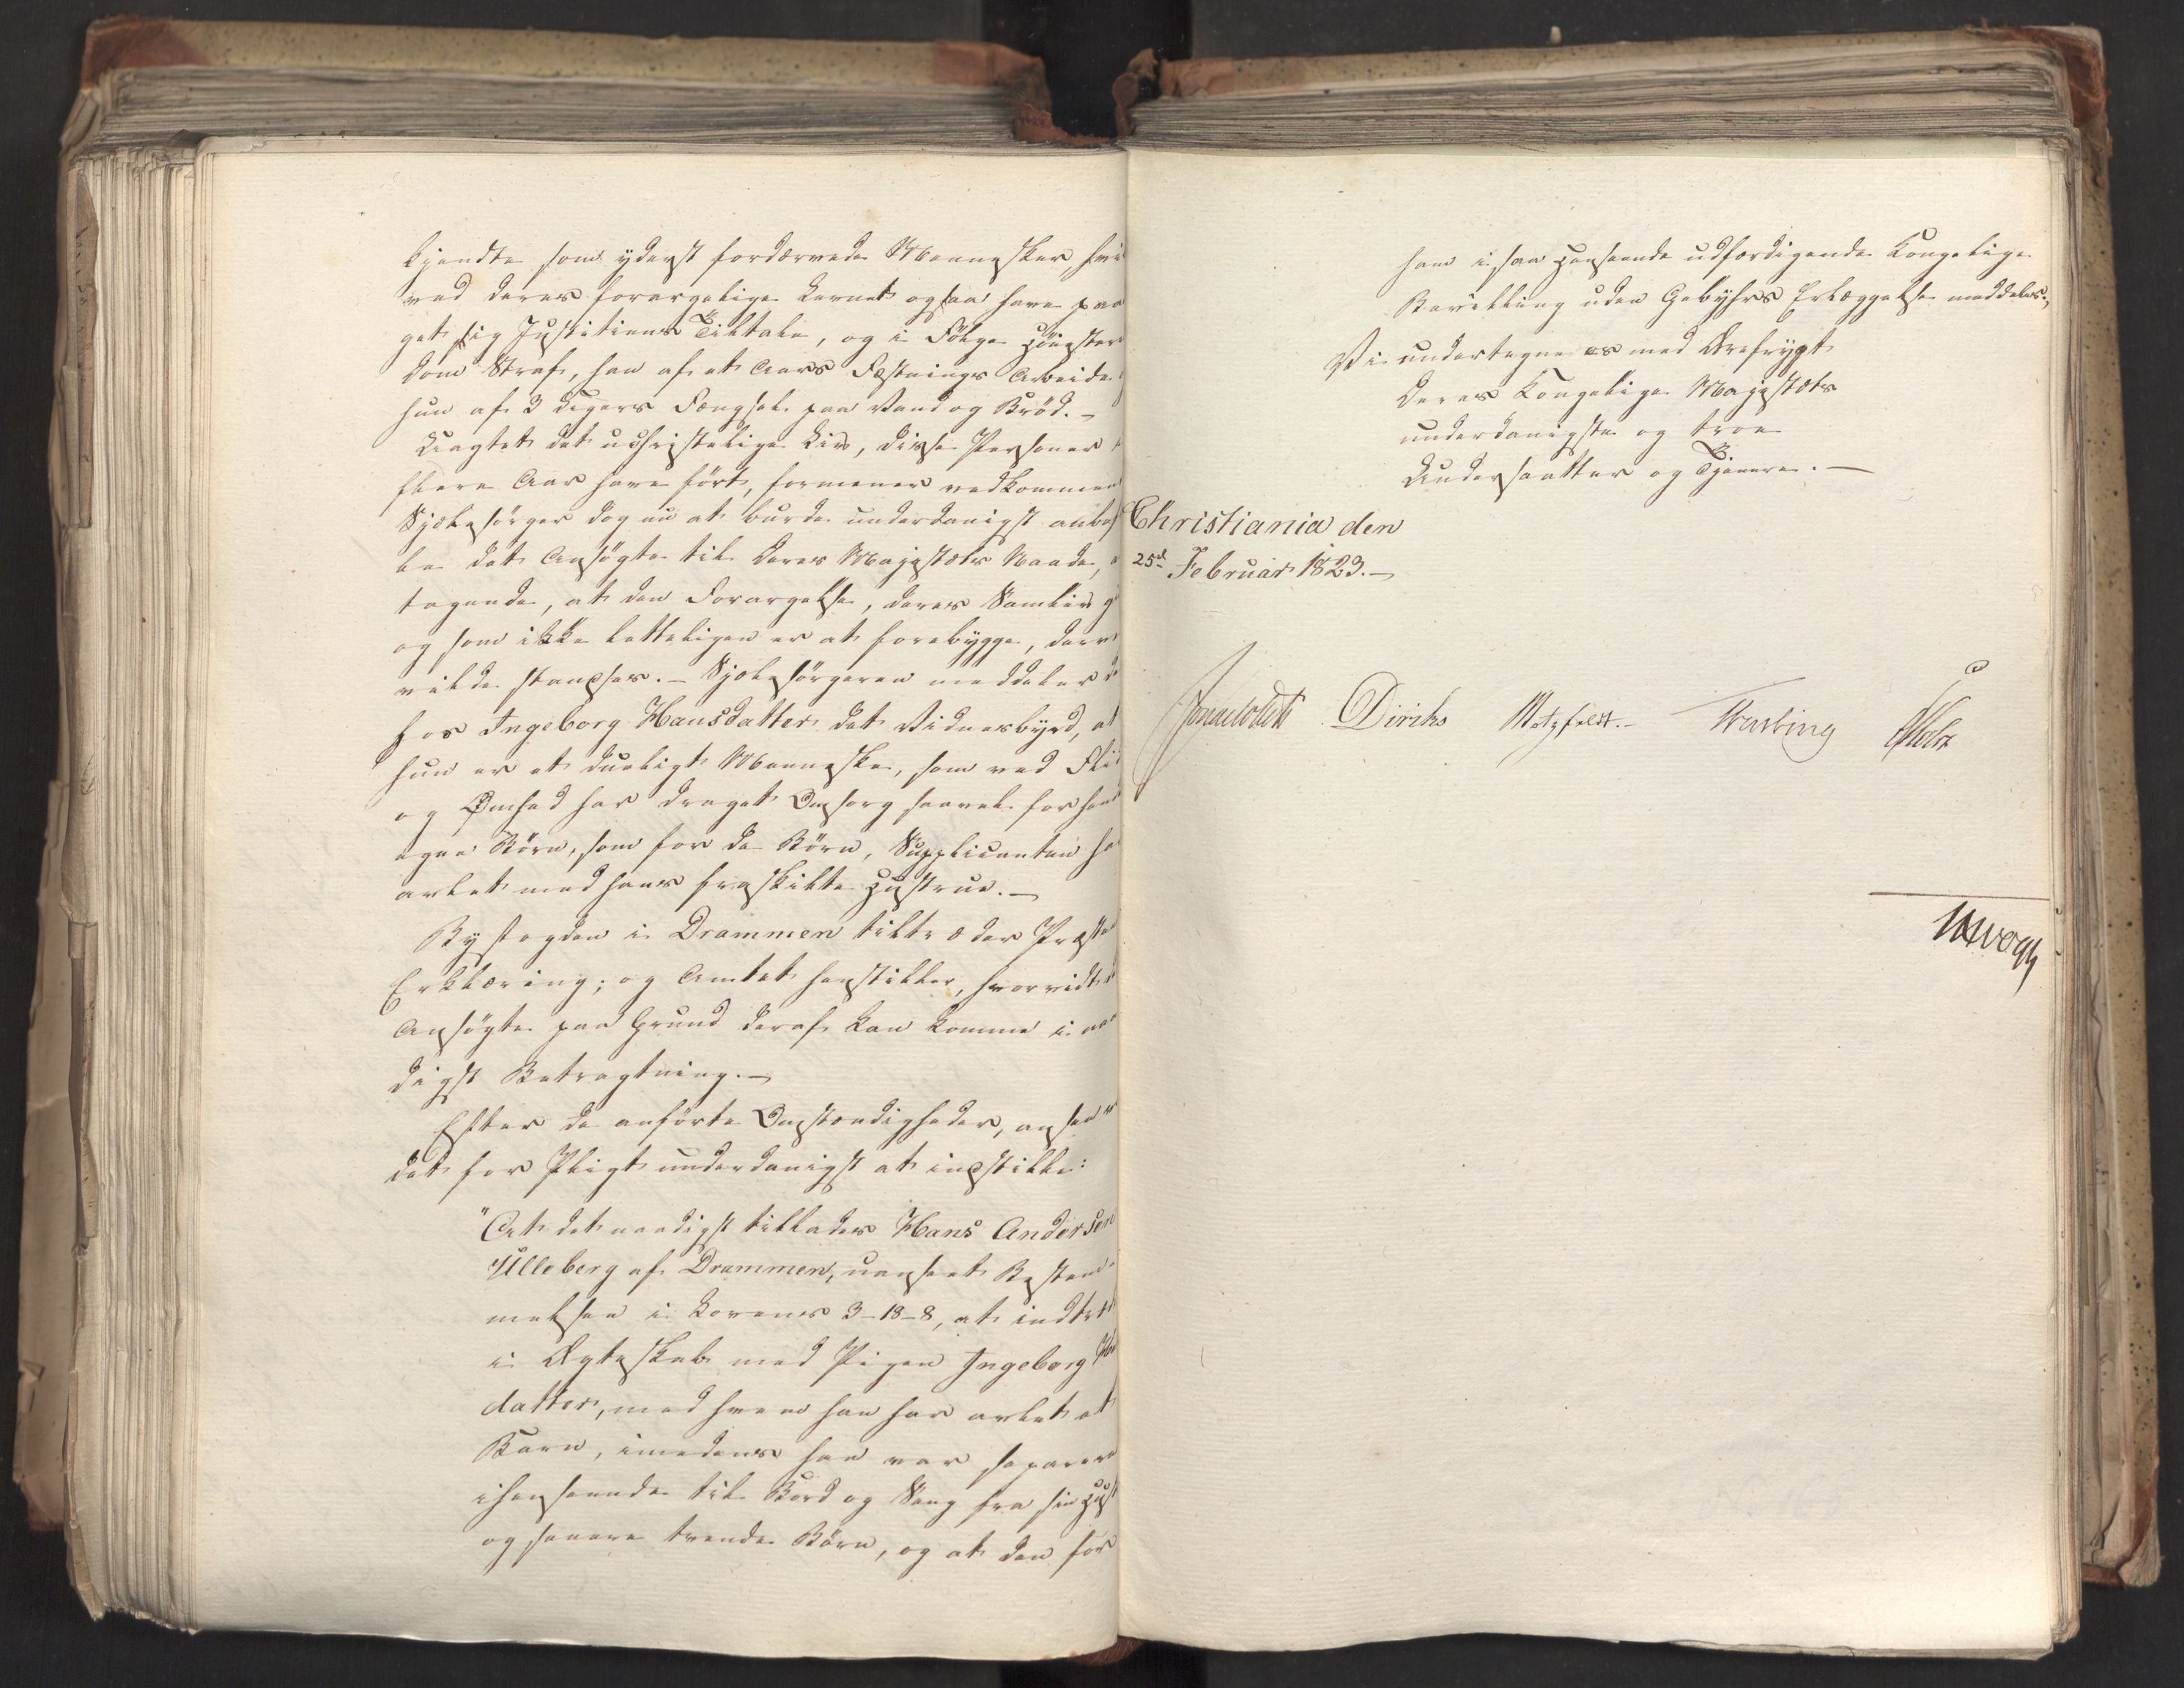 kjendte som yderst fordærvede Mennesker hvi
ved deres forargelige Levnet ogsaa have paa
get sig Justitiens Tiltale, og i Følge Høiester
doms Straf, han af et Aars Fæstnings Arbeide
hun af 3 Dagers Fængsel paa Vand og Brød. –
Uagtet det uchristelige Liv, disse Personer
flere Aar have ført, formener vedkommen
Sjælesørger dog nu at burde underdanigst anbef
le det Ansøgte til Deres Majestæts Naade,
tagende, at den Forargelse, deres Samliv g
og som ikke letteligen er at forebygge, derv
vilde standses. – Sjælesørgeren meddeler
hos Ingeborg Hansdatter det Vidnesbyrd, at
hun er et dueligt Menneske, som ved Flii
og Ømhed har draget Omsorg saavel for hen
egne Børn, som for de Børn, Supplicanten ha
avlet med hans fraskilte Hustrue. –
Byfogden i Drammen tiltræder Præste
Erklæring; og Amtet henstiller, hvorvidt
Ansøgte paa Grund deraf kan komme i naa
digst Betragtning. –
Efter de anførte Omstændigheder, ansee
det for Pligt underdanigst at indstille:
"At det naadigst tillades Hans Andersen
Ulleberg af Drammen, uanseet Bestem
melsen i Lovens 3-18-8, at indtræ
i Ægteskab med Pigen Ingeborg Ha
datter, med hvem han har avlet et
Barn, imedens han var separere
ihenseende til Bord og Seng fra sin Hust
og senere trende Børn, og at den for
ham i saa Henseende udfærdigende Kongelige
Bevilling uden Gebyhrs Erlæggelse meddeles."
Vi undertegne os med Ærefrygt
Deres Kongelige Majestæts
underdanigste og troe
Undersaatter og Tjenere. –
Christiania den
25d Februar 1823. –
Diriks Motzfeldt. –